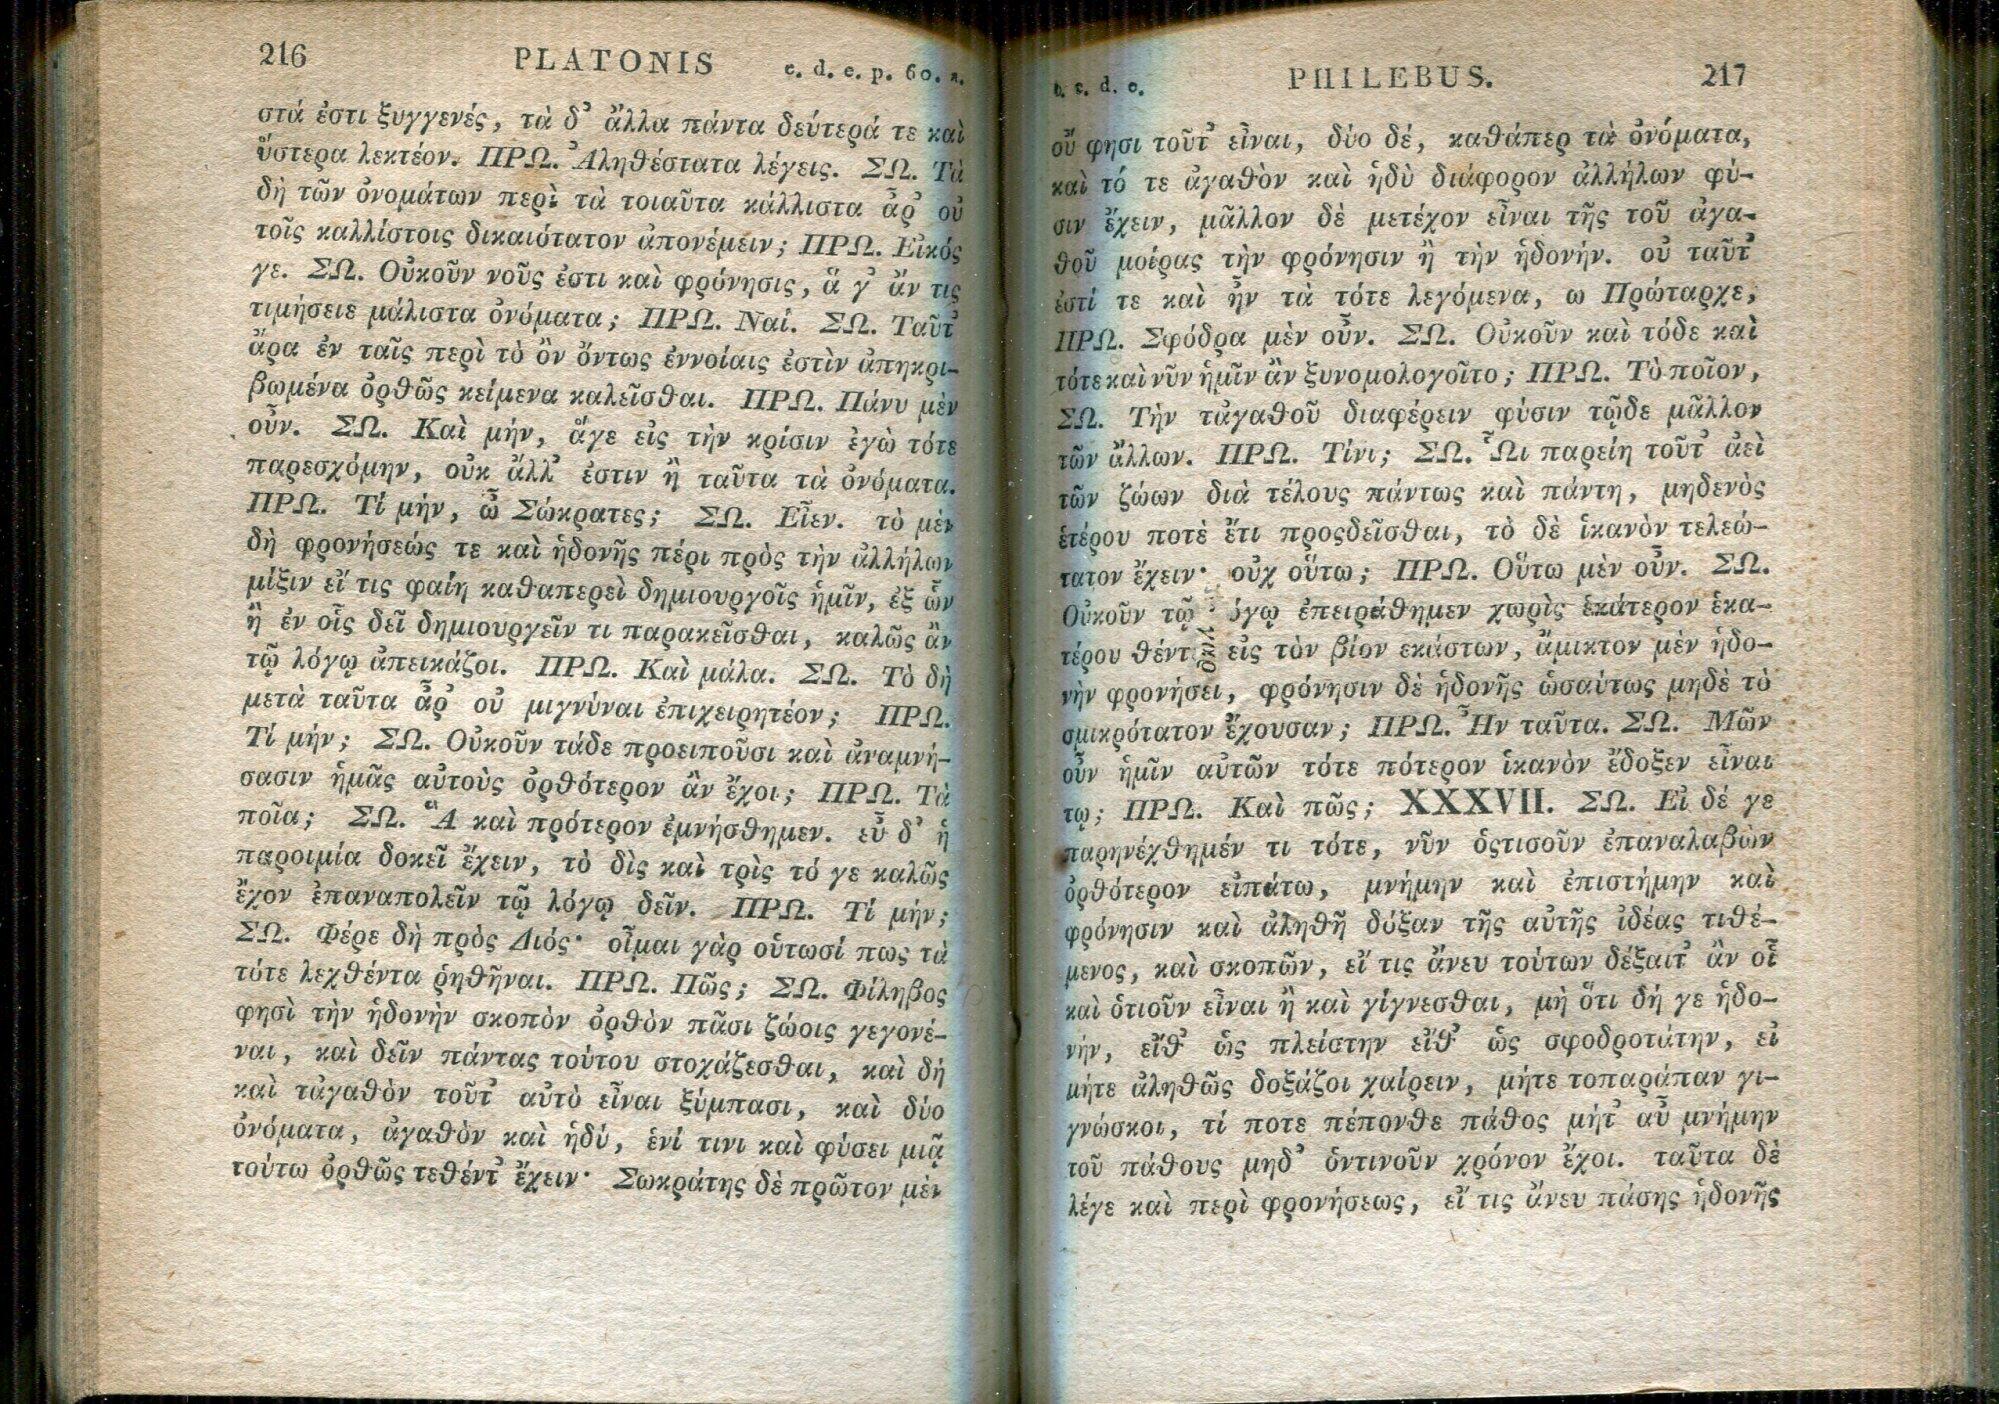 216 PLATONIS c. d. e. p. 60. a.
στά ἐστι ξυγγενές, τὰ δ᾽ ἄλλα πάντα δεύτερά τε καὶ
ὕστερα λεκτέον. ΠΡΩ. Ἀληθέστατα λέγεις. ΣΩ. Τὰ
δὴ τῶν ὀνομάτων περὶ τὰ τοιαῦτα κάλλιστα ἆρ᾽ οὐ
τοῖς καλλίστοις δικαιότατον ἀπονέμειν; ΠΡΩ. Εἰκός
γε. ΣΩ. Οὐκοῦν νοῦς ἐστι καὶ φρόνησις, ἅ γ᾽ ἄν τις
τιμήσειε μάλιστα ὀνόματα; ΠΡΩ. Ναί. ΣΩ. Ταῦτ᾽
ἄρα ἐν ταῖς περὶ τὸ ὂν ὄντως ἐννοίαις ἐστὶν ἀπηκρι-
βωμένα ὀρθῶς κείμενα καλεῖσθαι. ΠΡΩ. Πάνυ μὲν
οὖν. ΣΩ. Καὶ μήν, ἅγε εἰς τὴν κρίσιν ἐγὼ τότε
παρεσχόμην, οὐκ ἄλλ᾽ ἐστιν ἢ ταῦτα τὰ ὀνόματα.
ΠΡΩ. Τί μήν, ὦ Σώκρατες; ΣΩ. Εἶεν. τὸ μὲν
δὴ φρονήσεώς τε καὶ ἡδονῆς πέρι πρὸς τὴν ἀλλήλων
μίξιν εἴ τις φαίη καθαπερεὶ δημιουργοῖς ἡμῖν, ἐξ ὧν
ἢ ἐν οἷς δεῖ δημιουργεῖν τι παρακεῖσθαι, καλῶς ἂν
τῷ λόγῳ ἀπεικάζοι. ΠΡΩ. Καὶ μάλα. ΣΩ. Τὸ δὴ
μετὰ ταῦτα ἆρ᾽ οὐ μιγνύναι ἐπιχειρητέον; ΠΡΩ.
Τί μήν; ΣΩ. Οὐκοῦν τάδε προειποῦσι καὶ ἀναμνή-
σασιν ἡμᾶς αὐτοὺς ὀρθότερον ἂν ἔχοι; ΠΡΩ. Τὰ
ποῖα; ΣΩ. Ἃ καὶ πρότερον ἐμνήσθημεν. εὖ δ᾽ ἡ
παροιμία δοκεῖ ἔχειν, τὸ δὶς καὶ τρὶς τό γε καλῶς
ἔχον ἐπαναπολεῖν τῷ λόγῳ δεῖν. ΠΡΩ. Τί μήν;
ΣΩ. Φέρε δὴ πρὸς Διός· οἶμαι γὰρ οὑτωσί πως τὰ
τότε λεχθέντα ῥηθῆναι. ΠΡΩ. Πῶς; ΣΩ. Φίληβος
φησὶ τὴν ἡδονὴν σκοπὸν ὀρθὸν πᾶσι ζώοις γεγονέ-
ναι, καὶ δεῖν πάντας τούτου στοχάζεσθαι, καὶ δή
καὶ τἀγαθὸν τοῦτ᾽ αὐτὸ εἶναι ξύμπασι, καὶ δύο
ὀνόματα, ἀγαθὸν καὶ ἡδύ, ἑνί τινι καὶ φύσει μιᾷ
τούτω ὀρθῶς τεθέντ᾽ ἔχειν· Σωκράτης δὲ πρῶτον μὲν
b. c. d. e. PHILEBUS. 217
οὔ φησι τοῦτ᾽ εἶναι, δύο δέ, καθάπερ τὰ ὀνόματα,
καὶ τό τε ἀγαθὸν καὶ ἡδὺ διάφορον ἀλλήλων φύ-
σιν ἔχειν, μᾶλλον δὲ μετέχον εἶναι τῆς τοῦ ἀγα-
θοῦ μοίρας τὴν φρόνησιν ἢ τὴν ἡδονήν. οὐ ταῦτ᾽
ἐστί τε καὶ ἦν τὰ τότε λεγόμενα, ω Πρώταρχε;
ΠΡΩ. Σφόδρα μὲν οὖν. ΣΩ. Οὐκοῦν καὶ τόδε καὶ
τότε καὶ νῦν ἡμῖν ἂν ξυνομολογοῖτο; ΠΡΩ. Τὸ ποῖον,
ΣΩ. Τὴν τἀγαθοῦ διαφέρειν φύσιν τῷδε μᾶλλον
τῶν ἄλλων. ΠΡΩ. Τίνι; ΣΩ. Ὧι παρείη τοῦτ᾽ ἀεὶ
τῶν ζώων διὰ τέλους πάντως καὶ πάντη, μηδενὸς
ἑτέρου ποτὲ ἔτι προςδεῖσθαι, τὸ δὲ ἱκανὸν τελεώ-
τατον ἔχειν· οὐχ οὕτω; ΠΡΩ. Οὕτω μὲν οὖν. ΣΩ.
Οὐκοῦν τῷ όγῳ ἐπειράθημεν χωρὶς ἑκάτερον ἑκα-
τέρου θέντ εἰς τὸν βίον εκάστων, ἄμικτον μὲν ἡδο-
νὴν φρονήσει, φρόνησιν δὲ ἡδονῆς ὡσαύτως μηδὲ τὸ
σμικρότατον ἔχουσαν; ΠΡΩ. Ἦν ταῦτα. ΣΩ. Μῶν
οὖν ἡμῖν αὐτῶν τότε πότερον ἱκανὸν ἔδοξεν εἶναι
τῳ; ΠΡΩ. Καὶ πῶς; XXXVII. ΣΩ. Εἰ δέ γε
παρηνέχθημέν τι τότε, νῦν ὁςτισοῦν ἐπαναλαβὼν
ὀρθότερον εἰπάτω, μνήμην καὶ ἐπιστήμην καὶ
φρόνησιν καὶ ἀληθῆ δόξαν τῆς αὐτῆς ἰδέας τιθέ-
μενος, καὶ σκοπῶν, εἴ τις ἄνευ τούτων δέξαιτ᾽ ἂν οἷ
καὶ ὁτιοῦν εἶναι ἢ καὶ γίγνεσθαι, μὴ ὅτι δή γε ἡδο-
νήν, εἴθ᾽ ὡς πλείστην εἴθ᾽ ὡς σφοδροτάτην, εἰ
μήτε ἀληθῶς δοξάζοι χαίρειν, μήτε τοπαράπαν γι-
γνώσκοι, τί ποτε πέπονθε πάθος μήτ᾽ αὖ μνήμην
τοῦ πάθους μηδ᾽ ὁντινοῦν χρόνον ἔχοι. ταῦτα δὲ
λέγε καὶ περὶ φρονήσεως, εἴ τις ἄνευ πάσης ἡδονῆς